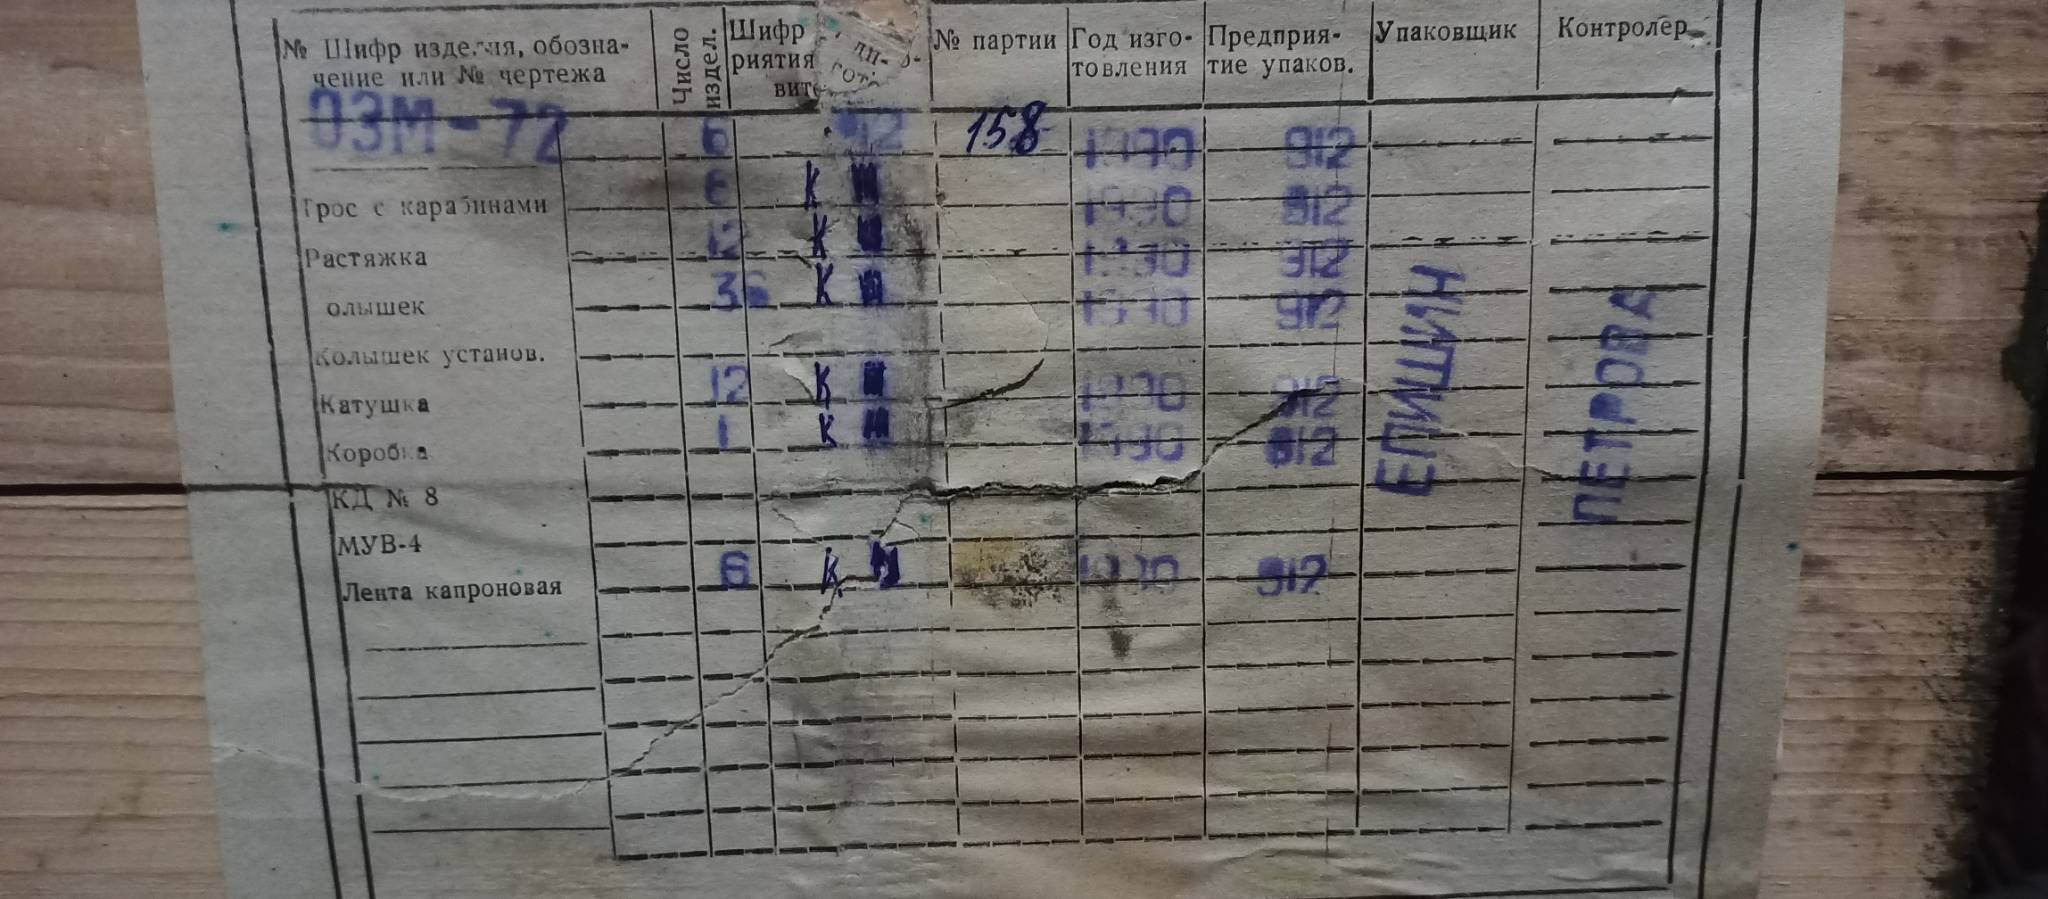 № Шифр изделия, обозна-
чение или № чертежа
Число издел.
Шифр
риятия
вите
ли-
гот
№ партии
Год изго-
товления
Предприя-
тие упаков.
Упаковщик
Контролер
ОЗМ-72 6 912 158 1990 912
Трос с карабинами 6 К 1990 912
Растяжка 12 К 1990 912
олышек 36 К 1990 912
Колышек установ.
Катушка 12 К 1990 912
Коробка 1 К 1990 912
КД № 8
МУВ-4
Лента капроновая 6 К 1990 912
ЕПИШИН
ПЕТРОВА